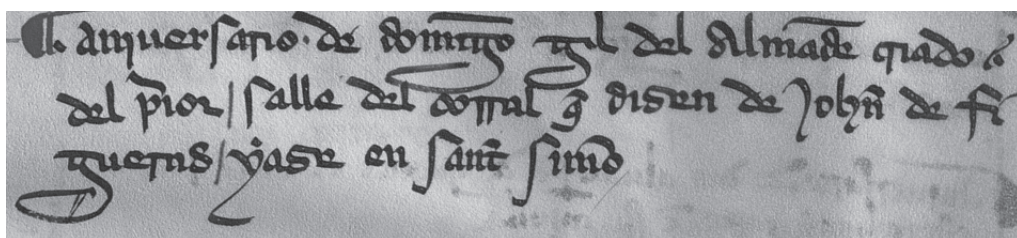 ¶ Aniuersario · de domingo gil del Almadẽ criado
del p̃ior / salle del corral q̃ disen de Johñ de fi
gueruas / yase en sant̃ simõ